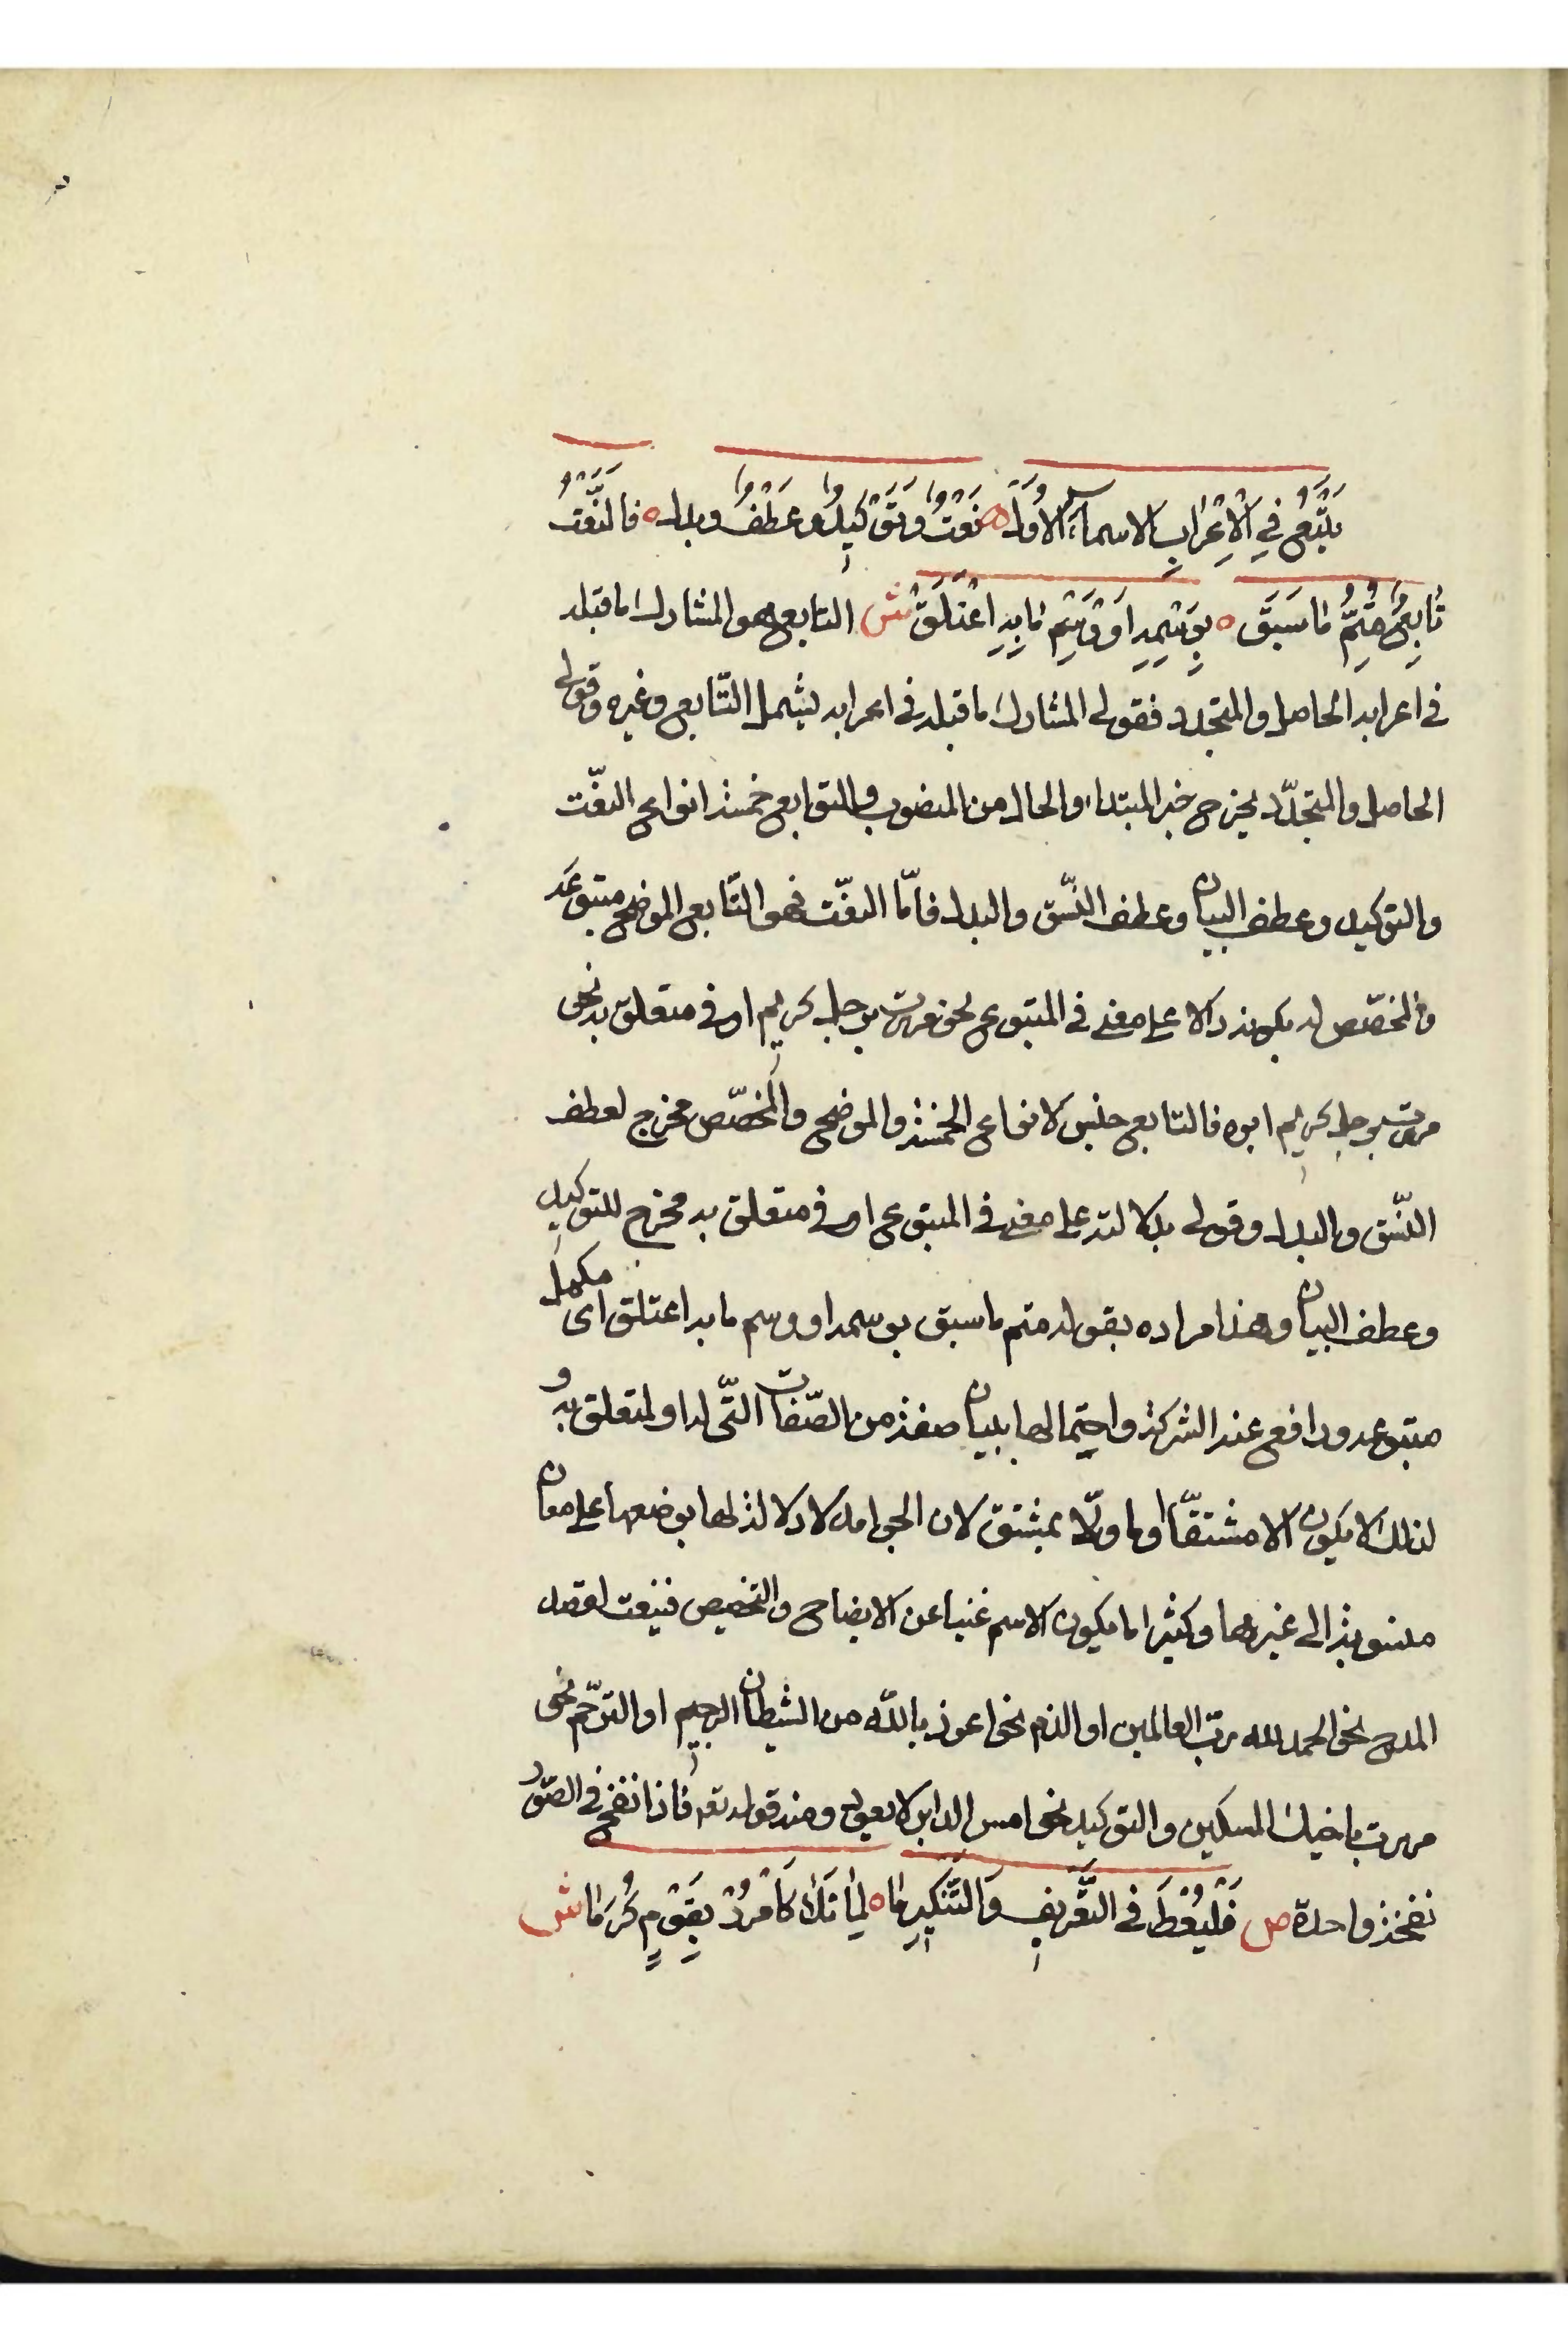 يَتْبَعُ فِي الْإِعْرَابِ الاسماء الأُوَل ه نَعْتٌ وَتَوْكِيدٌ وعَطْفٌ وبدل ه فَالنَّعْتُ
تَابِعٌ مُتِمٌّ مَا سَبَقَ ه بِوَسْمِهِ اَوْ وَسْمِ مَا بِهِ اعْتَلَقَ ش التابع هو المشارك ما قبله
في اعرابه الحاصل والمتجدد فقولى المشارك ما قبله في اعرابه يشمل التّابع وغيره وقولى
الحاصل والمتجدّد يخرج خبر المبتداء والحال من المنصوب والتوابع خمسة انواع النعّت
والتوكيد وعطف البيان وعطف النّسق والبدل فامّا النعّت فهو التّابع الموضح متبوعَه
والمخصّص له بكونه دالا على معنى في المتبوع نحو مررت برجل كريم او في متعلق به نحو
مررت برجل كريم ابوه فالتابع جنس لانواع الخمسة والموضح والمُخصّص مخرج لعطف
النّسق والبدل وقولى بدلالته على معنى في المتبوع او في متعلق به مخرج للتوكيد
وعطف البيان وهذا مراده بقوله متم ما سبق بوسمه او وسم ما به اعتلق اى مكمل
متبوعه ورافع عنه الشركة واحتمالها ببيان صفة من الصّفات التّى له او لمتعلق به و
لذلك لا يكون الا مشتقّا او ما ولّا بمشتق لان الجوامد لا دلالة لها بوضعها على معان
منسوبة الى غيرها وكثيرا ما يكون الاسم غنيا عن الايضاح والتخصيص فينعت لقصد
المدح نحو الحمد لله ربّ العالمين او الذم نحو اعوذ باللّه من الشيطان الرجيم او الترحّم نحو
مررت باخيك المسكين والتوكيد نحو امس الدابر لا يعود ومنه قوله تعم فاذا نفخ في الصّور
نفخة واحدة ص فَلْيُعْطَ في التَّعْرِيفِ وَالتَّنْكِيرِ مَا ه لِمَا تَلَا كَامْرُرْ بِقَوْمٍ كُرَمَا ش